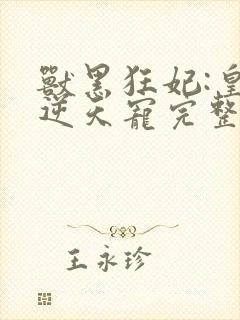 獸黑狂妃:皇
逆天寵完整
王永珍